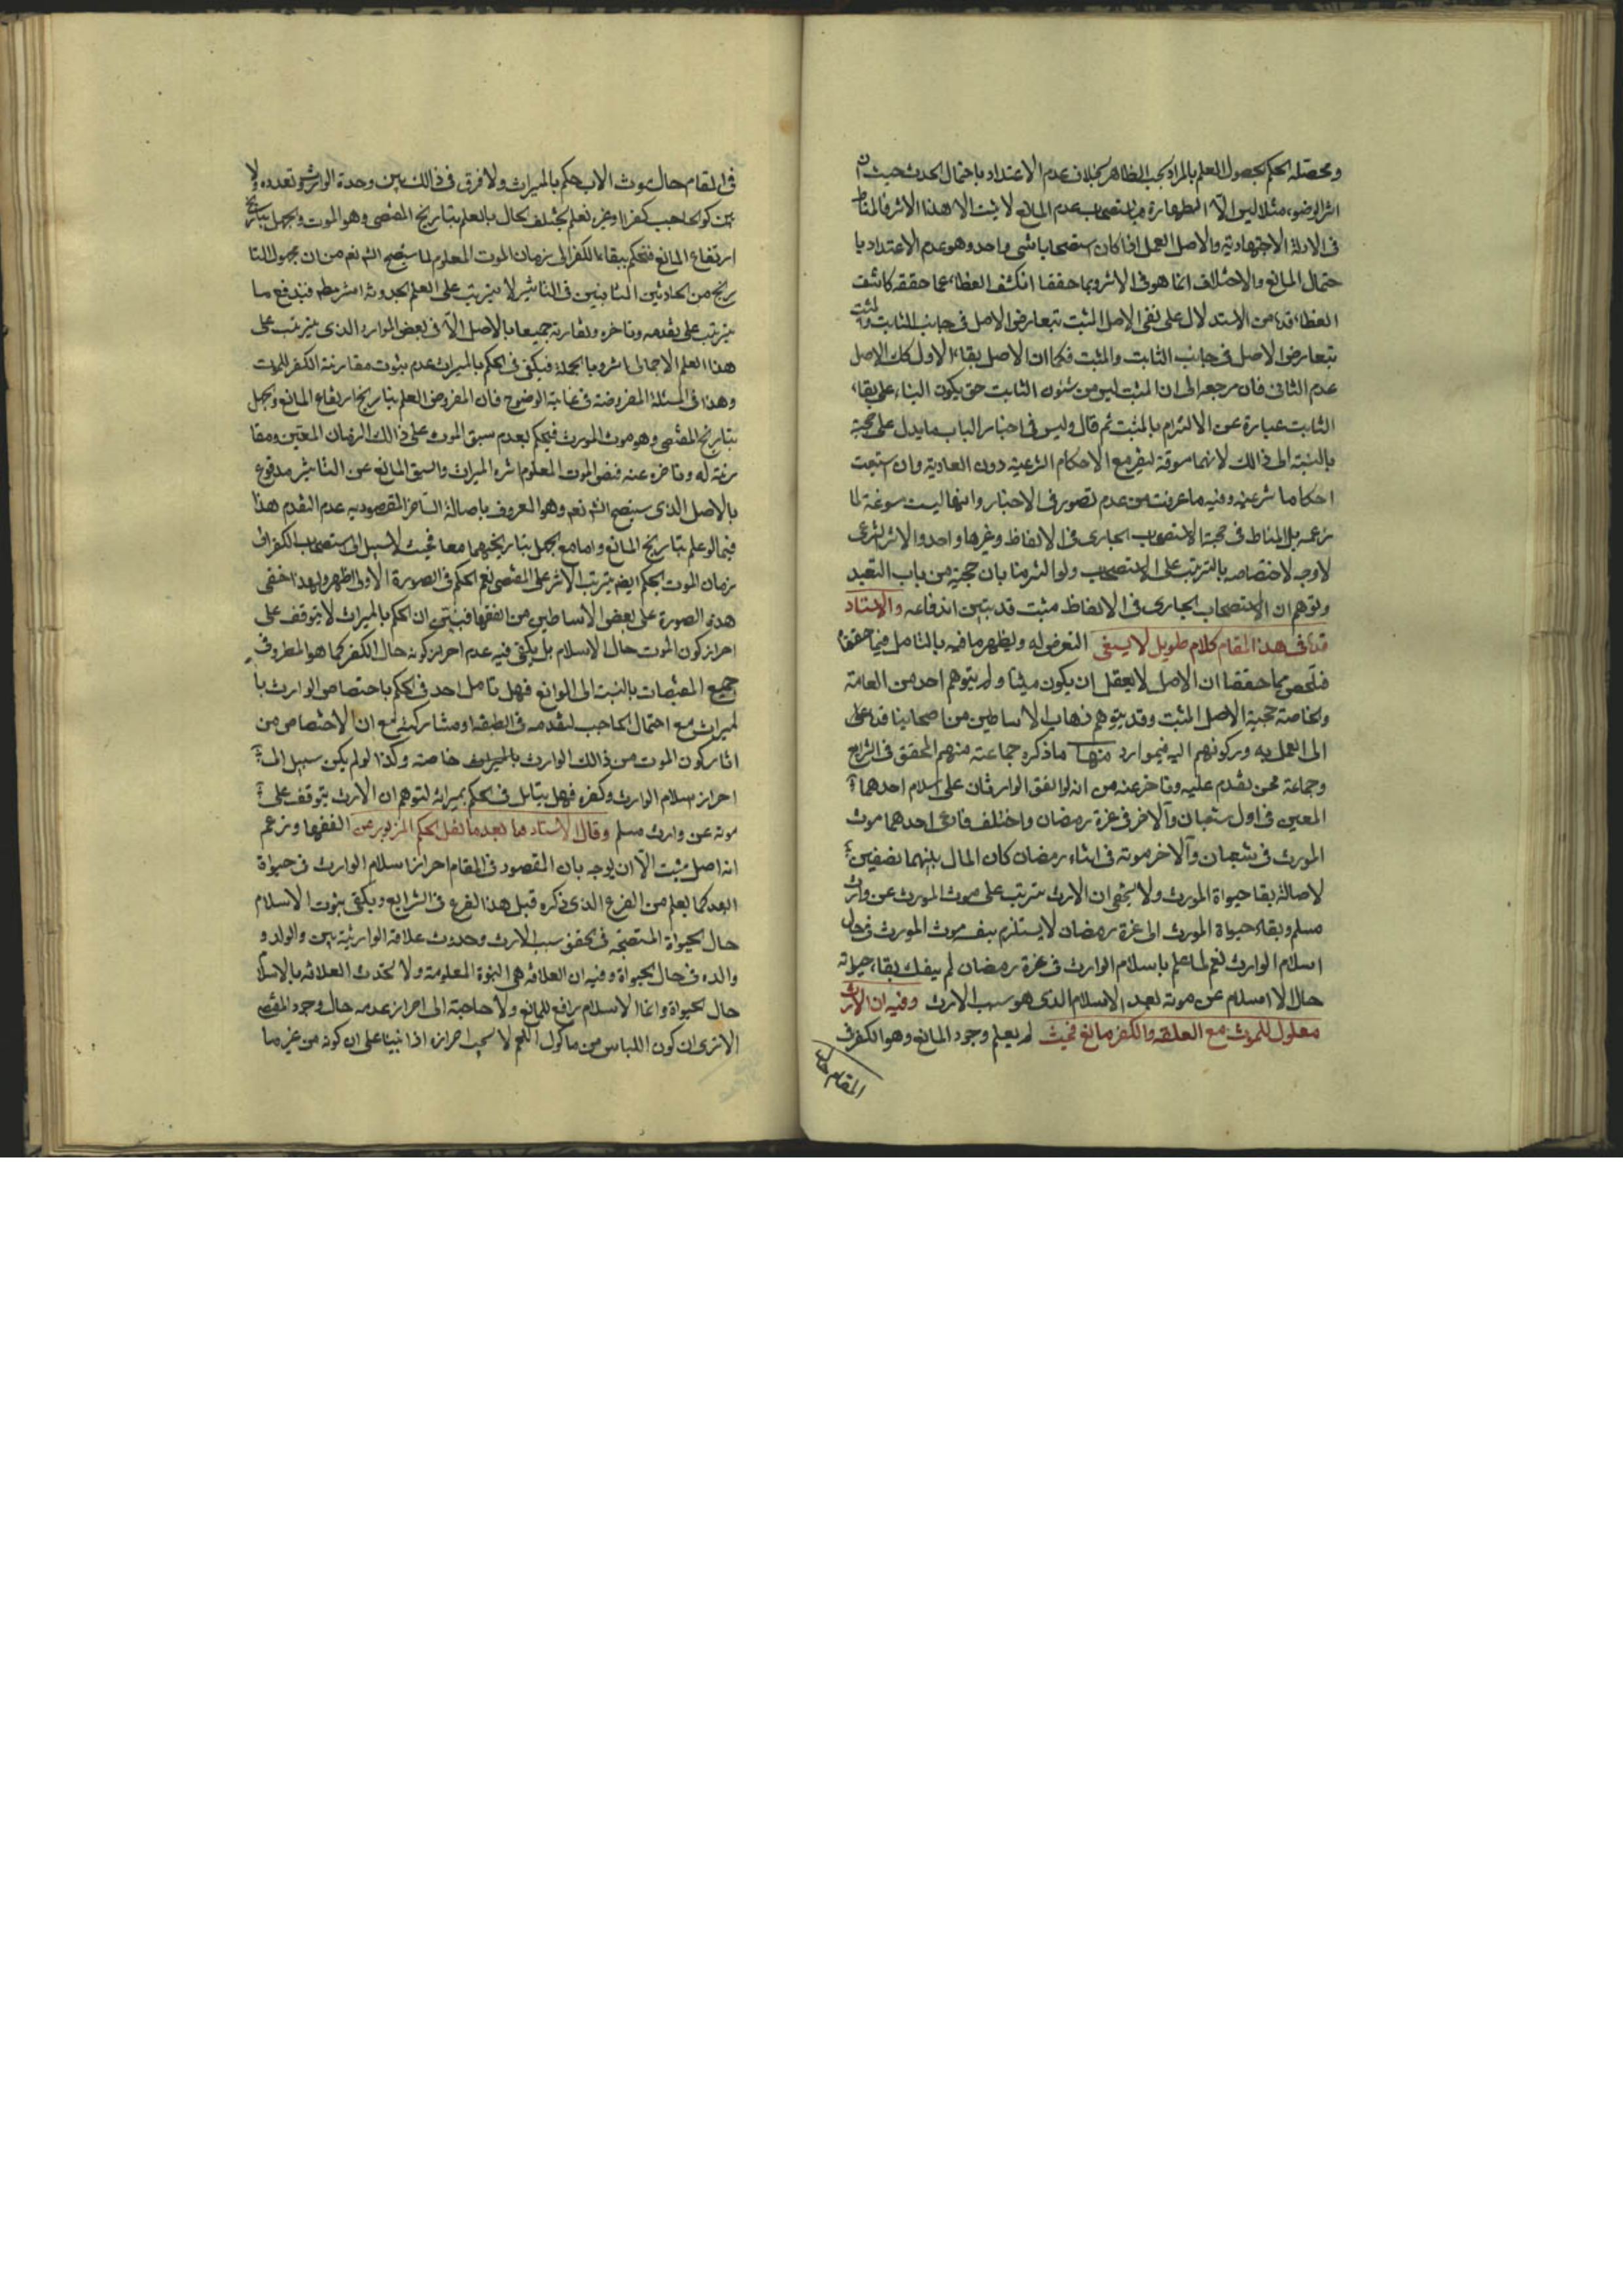 ومحصله الحكم بحصول العلم بالمراد بحسب الظاهر بخلاف عدم الاعتداد باحتمال الحدث حيث ان
اثر الوضوء مثلا ليس الا الطهارة فاستصحاب عدم المانع لا يثبت الا هذا الاثر فالمناط
فى الادلة الاجتهادية والاصل العمل اذا كان استصحابا شى واحد وهو عدم الاعتداد با
حتمال المانع والاختلاف انما هو فى الاثر وبما حققنا انكشف الغطاء عما حققه كاشف
الغطاء قده من الاستدلال على نفى الاصل المثبت بتعارض الاصل فى جانب الثابت والمثبت
بتعارض الاصل فى جانب الثابت والمثبت فكما ان الاصل بقاء الاول كك الاصل
عدم الثانى فان مرجعه الى ان المثبت ليس من شئون الثابت حتى يكون البناء على بقاء
الثابت عبارة عن الالتزام بالمثبت ثم قال وليس فى اخبار الباب ما يدل على حجية
بالنسبة الى ذالك لانها مسوقة لتفريع الاحكام الشرعية دون العادية وان استتبعت
احكاما شرعية وفيه ما عرفت من عدم تصور فى الاخبار وانها ليست مسوغة لما
زعمه بل المناط فى حجية الاستصحاب الجارى فى الالفاظ وغيرها واحد والاثر الشرعى
لا وجه لاختصاصه بالترتب على الاستصحاب ولو التزمنا بان حجية من باب التعبد
وتوهم ان الاستصحاب الجارى فى الالفاظ مثبت قد تبين اندفاعه والاستاد
قده فى هذا المقام كلام طويل لا ينبغى التعرض له ويظهر ما فيه بالتامل فيما حققنا
فتلخص مما حققنا ان الاصل لا يعقل ان يكون مثبتا ولم يتوهم احد من العامة
والخاصة حجية الاصل المثبت وقد يتوهم ذهاب الاساطين من اصحابنا قده على
الى العمل به وركونهم اليه فيموارد منها ما ذكره جماعة منهم المحقق فى الشرايع
وجماعة ممن تقدم عليه وتاخر عنه من انه لو اتفق الوارثان على اسلام احدهما
المعين فى اول شعبان والاخر فى غرة رمضان واختلف فادعى احدهما موت
المورث فى شعبان والاخر موته فى اثناء رمضان كان المال بينهما نصفين
لاصالة بقاء حيوة المورث ولا يخفى ان الارث مترتب على موت المورث عن وارث
مسلم وبقاء حيوة المورث الى غرة رمضان لا يستلزم بنفسه موت المورث فى حال
اسلام الوارث نعم لما علم باسلام الوارث فى غرة رمضان لم ينفك بقاء حياته
حال الاسلام عن موته بعد الاسلام الذى هو سبب الارث وفيه ان الارث
معلول للموت مع العلقه والكفر مانع فحيث لم يعلم وجود المانع وهو الكفر فى
المقام حال
فى المقام حال موت الاب حكم بالميراث ولا فرق فى ذالك بين وحدة الوارث وتعدده ولا
بين كون الحاجب كفرا وغيره نعم يختلف الحال بالعلم بتاريخ المقتضى وهو الموت والجهل بتاريخ
ارتفاع المانع فنحكم ببقاء الكفر الى زمان الموت المعلوم لما سيتضح انشه نعم من ان مجهول التا
ريخ من الحادثين الثابتين فى التاثير لا يترتب على العلم بحدوثه اثر مطم فيندفع ما
يترتب على تقدمه وتاخره وتقارنه جميعا بالاصل الا فى بعض الموارد الذى يترتب على
هذا العلم الاجمالى اثر وبالجملة فيكفى فى الحكم بالميراث عدم ثبوت مقارنة الكفر للموت
وهذا فى المسئلة المفروضة فى غاية الوضوح فان المفروض العلم بتاريخ ارتفاع المانع والجهل
بتاريخ المقتضى وهو موت المورث فيحكم بعدم سبق الموت على ذالك الزمان المعين ومقا
رنته له وتاخره عنه فنفس الموت المعلوم اثره الميراث والسبق المانع عن التاثير مدفوع
بالاصل الذى سيتضح انشه نعم وهو المعروف باصالة التاخر المقصود به عدم التقدم هذا
فيما لو علم بتاريخ المانع واما مع الجهل بتاريخهما معا فحيث لا سبيل الى استصحاب الكفر الى
زمان الموت الحكم ايضم يترتب الاثر على المقتضى نعم الحكم فى الصورة الاولى اظهر ولهذا خفى
هذه الصورة على بعض الاساطين من الفقها فتبين ان الحكم بالميراث لا يتوقف على
احراز كون الموت حال الاسلام بل يكفى فيه عدم احراز كونه حال الكفر كما هو المطرد فى
جميع المقتضيات بالنسبة الى الموانع فهل تامل احد فى الحكم باختصاص الوارث با
لميراث مع احتمال الحاجب لتقدمه فى الطبقة او مشاركته مع ان الاختصاص من
اثار كون الموت من ذالك الوارث بالميراث خاصته وكذا لو لم يكن سبيل الى
احراز اسلام الوارث وكفره فهل يتامل فى الحكم بميراثه لتوهم ان الارث يتوقف على
موته عن وارث مسلم وقال الاستاد ها بعد ما نقل الحكم المزبور عن الفقها وزعم
انه اصل مثبت الا ان يوجه بان المقصود فى المقام احراز اسلام الوارث فى حيوة
ابيه كما يعلم من الفرع الذى ذكره قبل هذا الفرع فى الشرايع ويكفى ثبوت الاسلام
حال الحيوة المستصحبة فى تحقق سبب الارث وحدوث علاقة الوارثية بين الولد و
والده فى حال الحيوة وفيه ان العلاقه هى البنوة المعلومة ولا تحدث العلاقه بالاسلام
حال الحيوة وانما الاسلام رافع للمانع ولا حاجة الى احراز عدمه حال وجود المقتضى
الا ترى ان كون اللباس من ماكول اللحم لا يجب احرازه اذا بنينا على ان كونه من غير ما